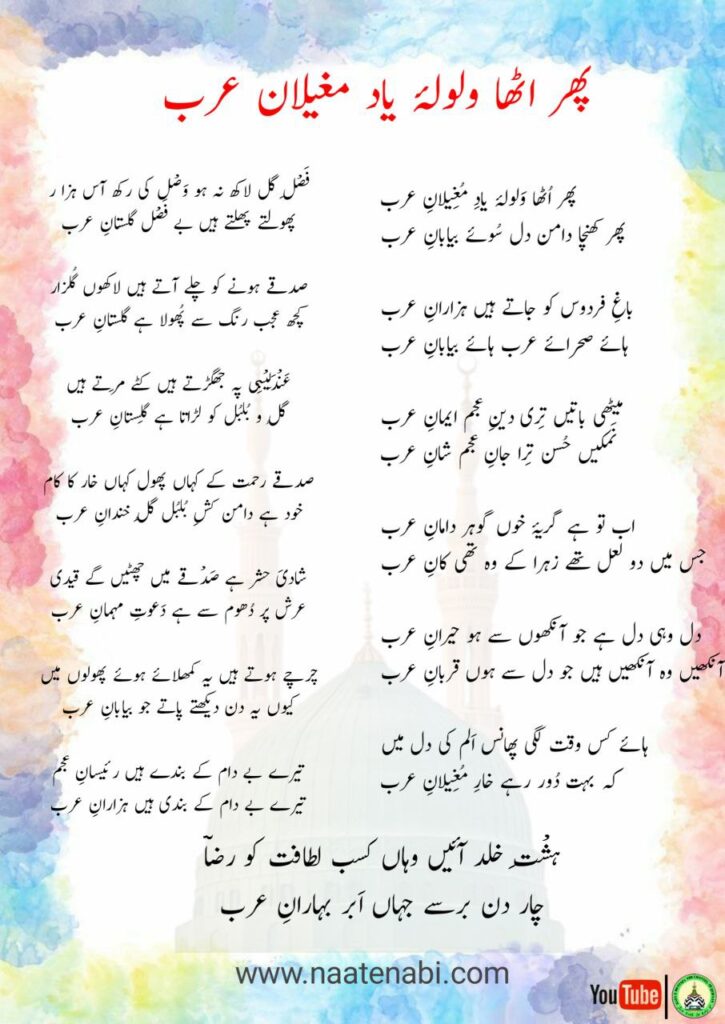 پھر اٹھا ولولۂ یاد مغیلان عرب
پھر اُٹھا وَلولۂ یادِ مُغِیلانِ عرب
پھر کھنچا دامن دل سُوئے بیابانِ عرب
باغِ فردوس کو جاتے ہیں ہزارانِ عرب
ہائے صحرائے عرب ہائے بیابانِ عرب
میٹھی باتیں تِری دینِ عجم ایمانِ عرب
نَمکیں حُسن تِرا جانِ عجم شانِ عرب
اب تو ہے گریۂ خوں گوہر دامانِ عرب
جس میں دو لعل تھے زہرا کے وہ تھی کانِ عرب
دل وہی دل ہے جو آنکھوں سے ہو حیرانِ عرب
آنکھیں وہ آنکھیں ہیں جو دل سے ہوں قربانِ عرب
ہائے کس وقت لگی پھانس اَلم کی دل میں
کہ بہت دُور رہے خارِ مُغِیلانِ عرب
فَصْلِ گل لاکھ نہ ہو وَصْل کی رکھ آس ہزا ر
پھولتے پھلتے ہیں بے فَصْل گلستانِ عرب
صدقے ہونے کو چلے آتے ہیں لاکھوں گُلزار
کچھ عجب رنگ سے پُھولا ہے گلستانِ عرب
عَنْدَلِیبی پہ جھگڑتے ہیں کٹے مرتے ہیں
گل و بُلبُل کو لڑاتا ہے گلِستانِ عرب
صدقے رحمت کے کہاں پھول کہاں خار کا کام
خود ہے دامن کشِ بُلبُل گلِ خندانِ عرب
شادیٔ حشر ہے صَدْقے میں چھٹیں گے قیدی
عرش پر دُھوم سے ہے دَعوتِ مہمانِ عرب
چرچے ہوتے ہیں یہ کمھلائے ہوئے پھولوں میں
کیوں یہ دن دیکھتے پاتے جو بیابانِ عرب
تیرے بے دام کے بندے ہیں رئیسانِ عجم
تیرے بے دام کے بندی ہیں ہزارانِ عرب
ہشْت خلد آئیں وہاں کسب لطافت کو رضاؔ
چار دن برسے جہاں اَبر بہارانِ عرب
www.naatenabi.com
YouTube